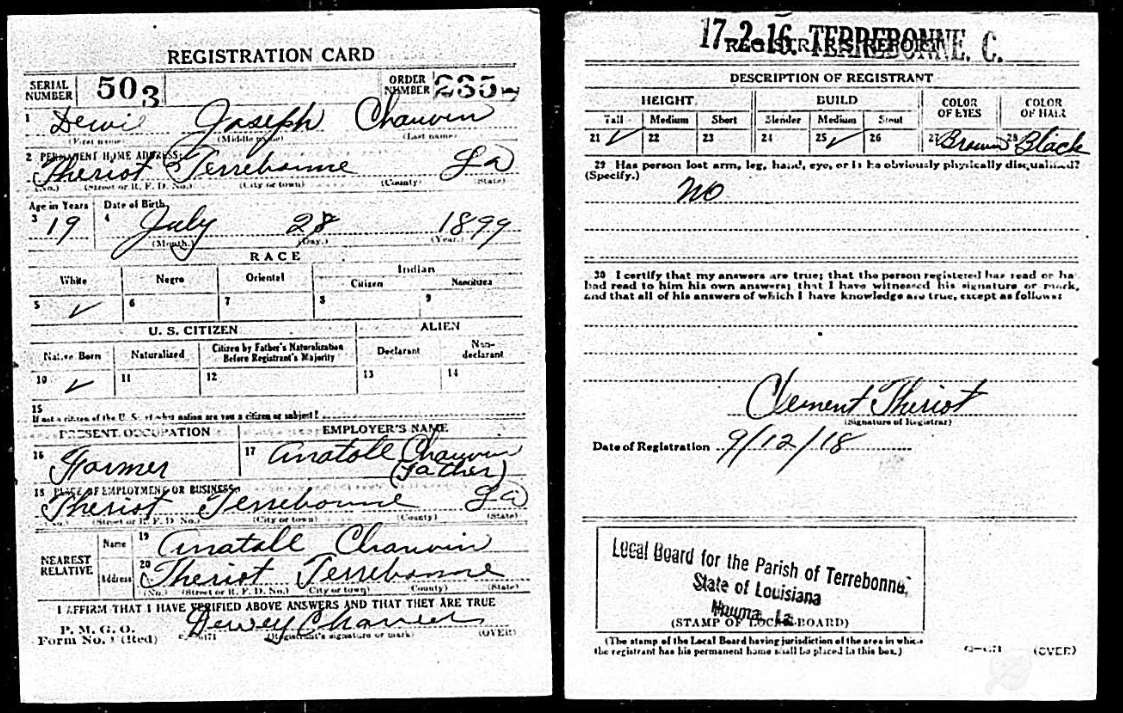 REGISTRATION CARD
SERIAL NUMBER 503
ORDER NUMBER
1 Dewie Joseph Chauvin
(First name) (Middle name) (Last name)
2 PERMANENT HOME ADDRESS:
Theriot Terrebonne La
(No.) (Street or R. F. D. No.) (City or town) (County) (State)
Age in Years Date of Birth
3 19 4 July 28 1899
(Month.) (Day.) (Year.)
RACE
White Negro Oriental Indian
Citizen Noncitizen
5 ✓ 6 7 8 9
U. S. CITIZEN ALIEN
Native Born Naturalized Citizen by Father's Naturalization Before Registrant's Majority Declarant Non-declarant
10 ✓ 11 12 13 14
15
If not a citizen of the U. S., of what nation are you a citizen or subject?
PRESENT OCCUPATION EMPLOYER'S NAME
16 Farmer 17 Anatole Chauvin
(Father)
18 PLACE OF EMPLOYMENT OR BUSINESS:
Theriot Terrebonne La
(No.) (Street or R. F. D. No.) (City or town) (County) (State)
NEAREST RELATIVE
Name 19 Anatole Chauvin
Address 20 Theriot Terrebonne
(No.) (Street or R. F. D. No.) (City or town) (County) (State)
I AFFIRM THAT I HAVE VERIFIED ABOVE ANSWERS AND THAT THEY ARE TRUE
P. M. G. O.
Form No. 1 (Red) Dewey Chauvin
(Registrant's signature or mark) (OVER)
17-2-16. TERREBONNE. C.
REGISTRAR'S REPORT
DESCRIPTION OF REGISTRANT
HEIGHT BUILD COLOR OF EYES COLOR OF HAIR
Tall Medium Short Slender Medium Stout
21 ✓ 22 23 24 25 ✓ 26 27 Brown 28 Black
29 Has person lost arm, leg, hand, eye, or is he obviously physically disqualified?
(Specify.)
No
30 I certify that my answers are true; that the person registered has read or has
had read to him his own answers; that I have witnessed his signature or mark,
and that all of his answers of which I have knowledge are true, except as follows:
Clement Theriot
(Signature of Registrar)
Date of Registration 9/12/18
Local Board for the Parish of Terrebonne,
State of Louisiana
Houma, La.
(STAMP OF LOCAL BOARD)
(The stamp of the Local Board having jurisdiction of the area in which
the registrant has his permanent home shall be placed in this box.)
(OVER)